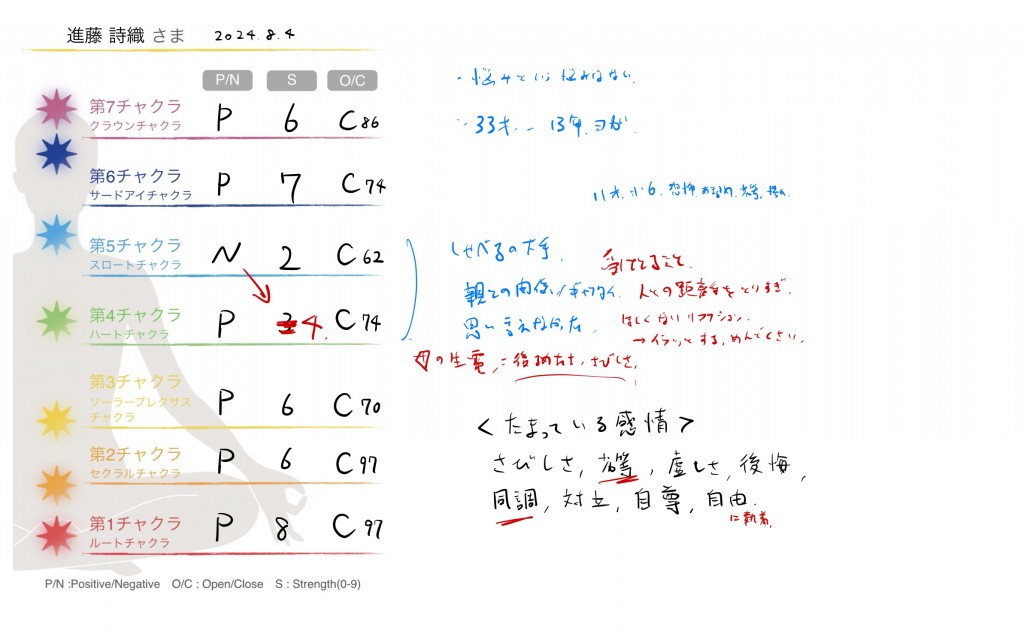 進藤 詩織 さま 2024.8.4
P/N S O/C
第7チャクラ
クラウンチャクラ
P 6 C 86
第6チャクラ
サードアイチャクラ
P 7 C 74
第5チャクラ
スロートチャクラ
N 2 C 62
第4チャクラ
ハートチャクラ
P 4. C 74
第3チャクラ
ソーラープレクサス
チャクラ
P 6 C 70
第2チャクラ
セクラルチャクラ
P 6 C 97
第1チャクラ
ルートチャクラ
P 8 C 97
P/N :Positive/Negative O/C : Open/Close S : Strength(0-9)
・悩みという悩みはない
33才
11才 小6. 恐怖
しゃべるの大事
親との関係
思い
人との距離をとりすぎ.
ほしくないリアクション.
→イラッとする, めんどくさい,
さびしさ,
<たまっている感情>
さびしさ, 劣等, 虚しさ, 後悔,
同調, 対立, 自尊, 自由.
に執着.